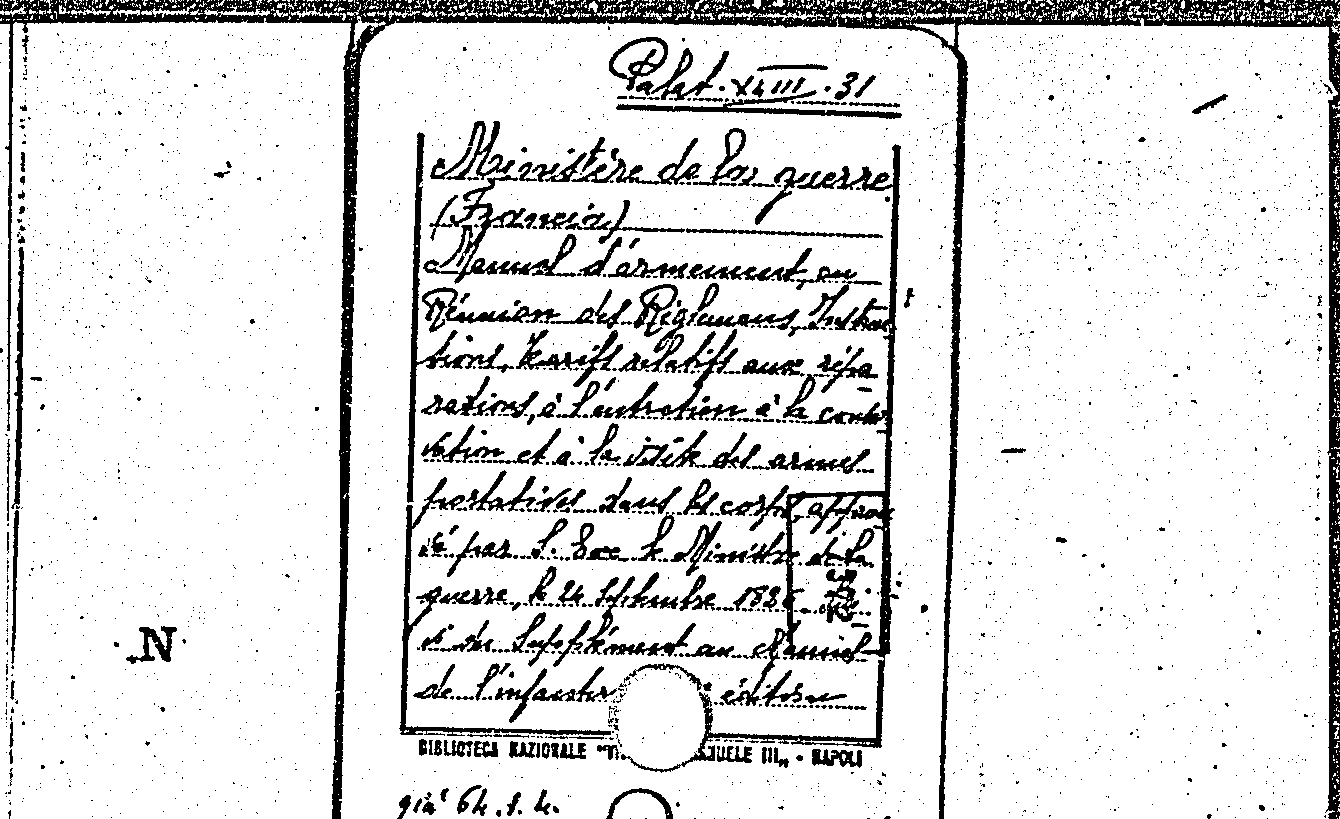 Palat. XLIII. 31
Ministère de la guerre
(Francia)
Manuel d'armement, ou
Réunion des Réglemens, Instruc
tions, tarifs relatifs aux répa
rations, à l'entretien à la conser
vation et à la visite des armes
portatives dans les corps, approu
vé par S. Exc le Ministre de la
guerre, le 24 Septembre 182
du Supplément au Manuel
de l'infanter édition
BIBLIOTECA NAZIONALE NUELE III„ - NAPOLI
già 64.
N